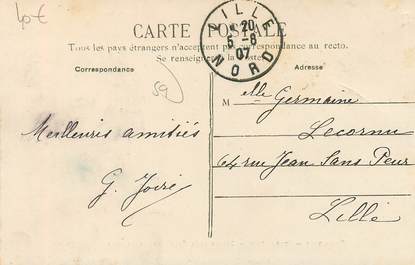 40€
CARTE POSTALE
Tous les pays étrangers n'acceptent pas correspondance au recto.
Se renseigner à la Poste.
LILLE
*20
5-6
07
NORD
Correspondance
Adresse
59
Melle Germaine
Lecornu
64 rue Jean Sans Peur
Lille
Meilleurs amitiés
G. Joiré